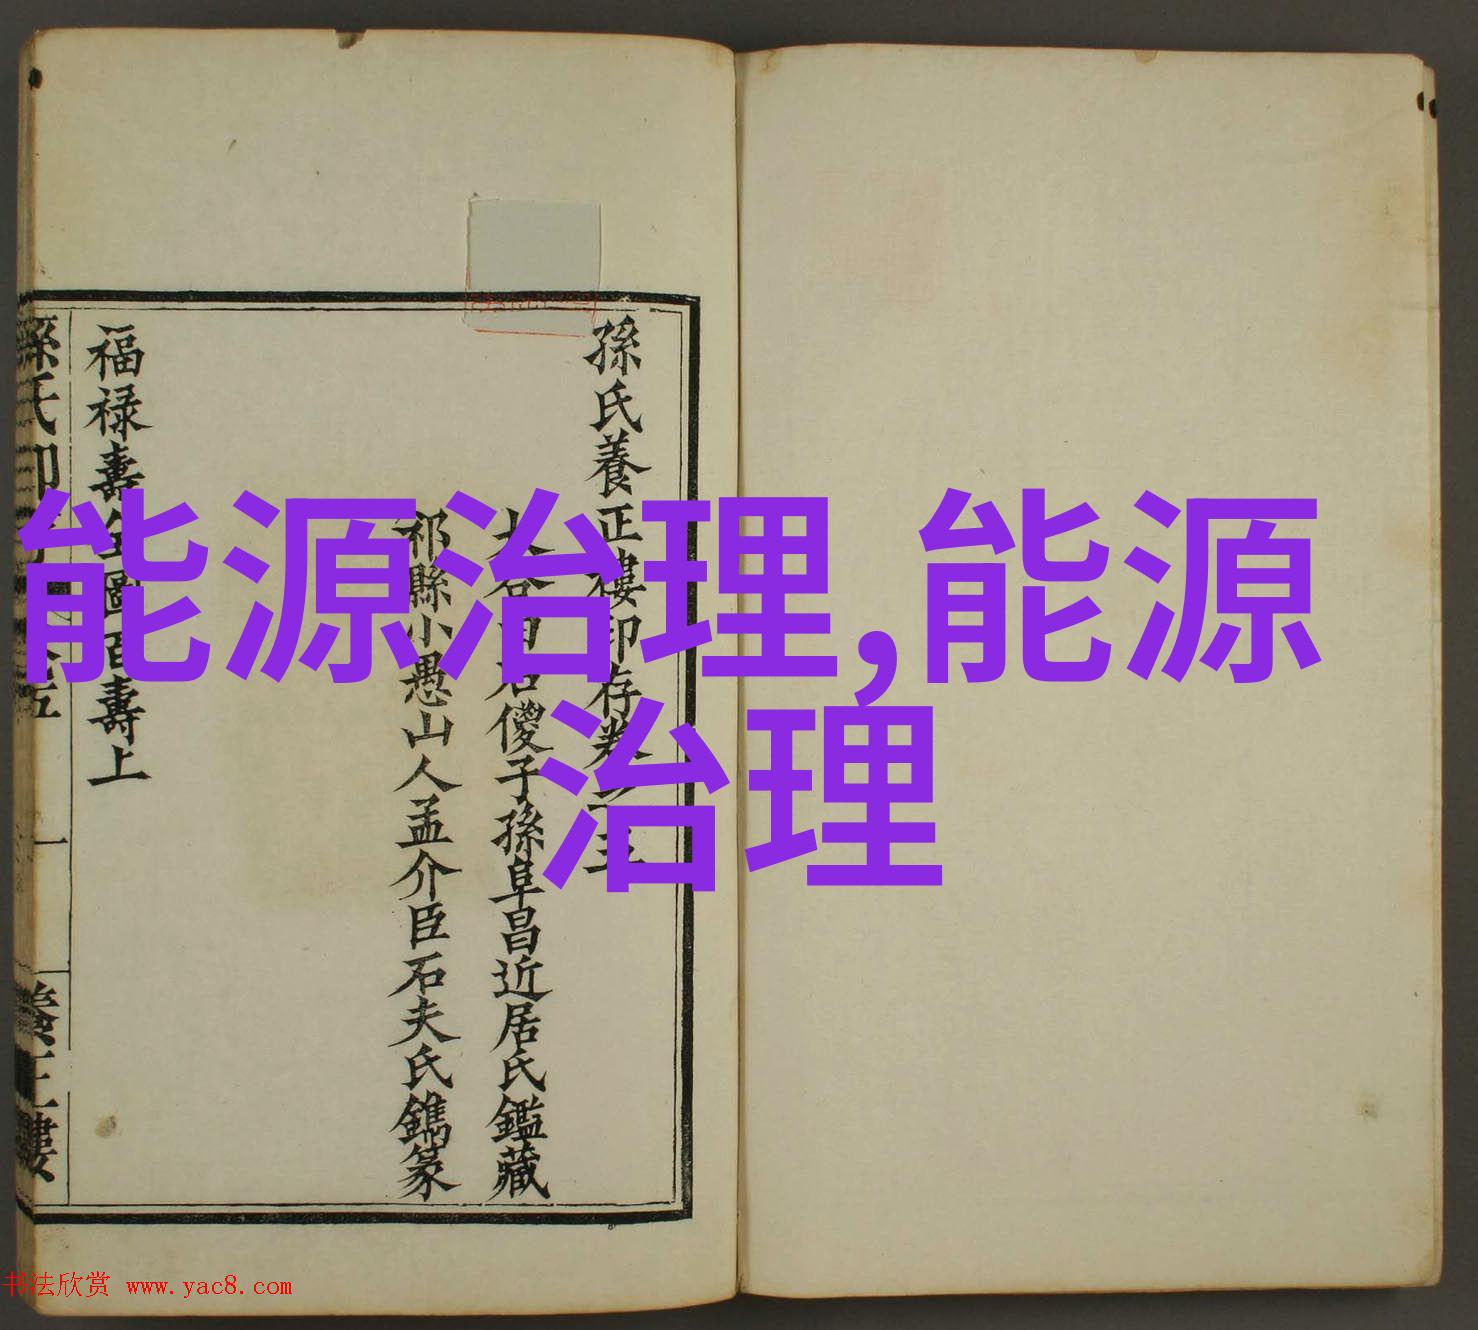 孫氏養正樓印存卷之三
太谷田居儍子孫阜昌近居氏鑑藏
祁縣小愚山人孟介臣石夫氏鐫篆
福禄壽全圖百壽上
養正樓
能源治理,能源
治理
书法欣赏 www.yac8.com